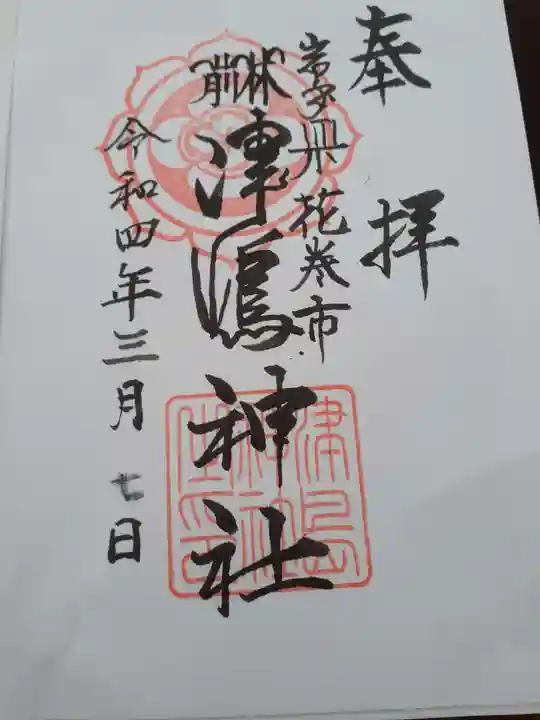 奉拝
岩手県花巻市
林前
津嶋神社
令和四年三月七日
津島
神社
之印